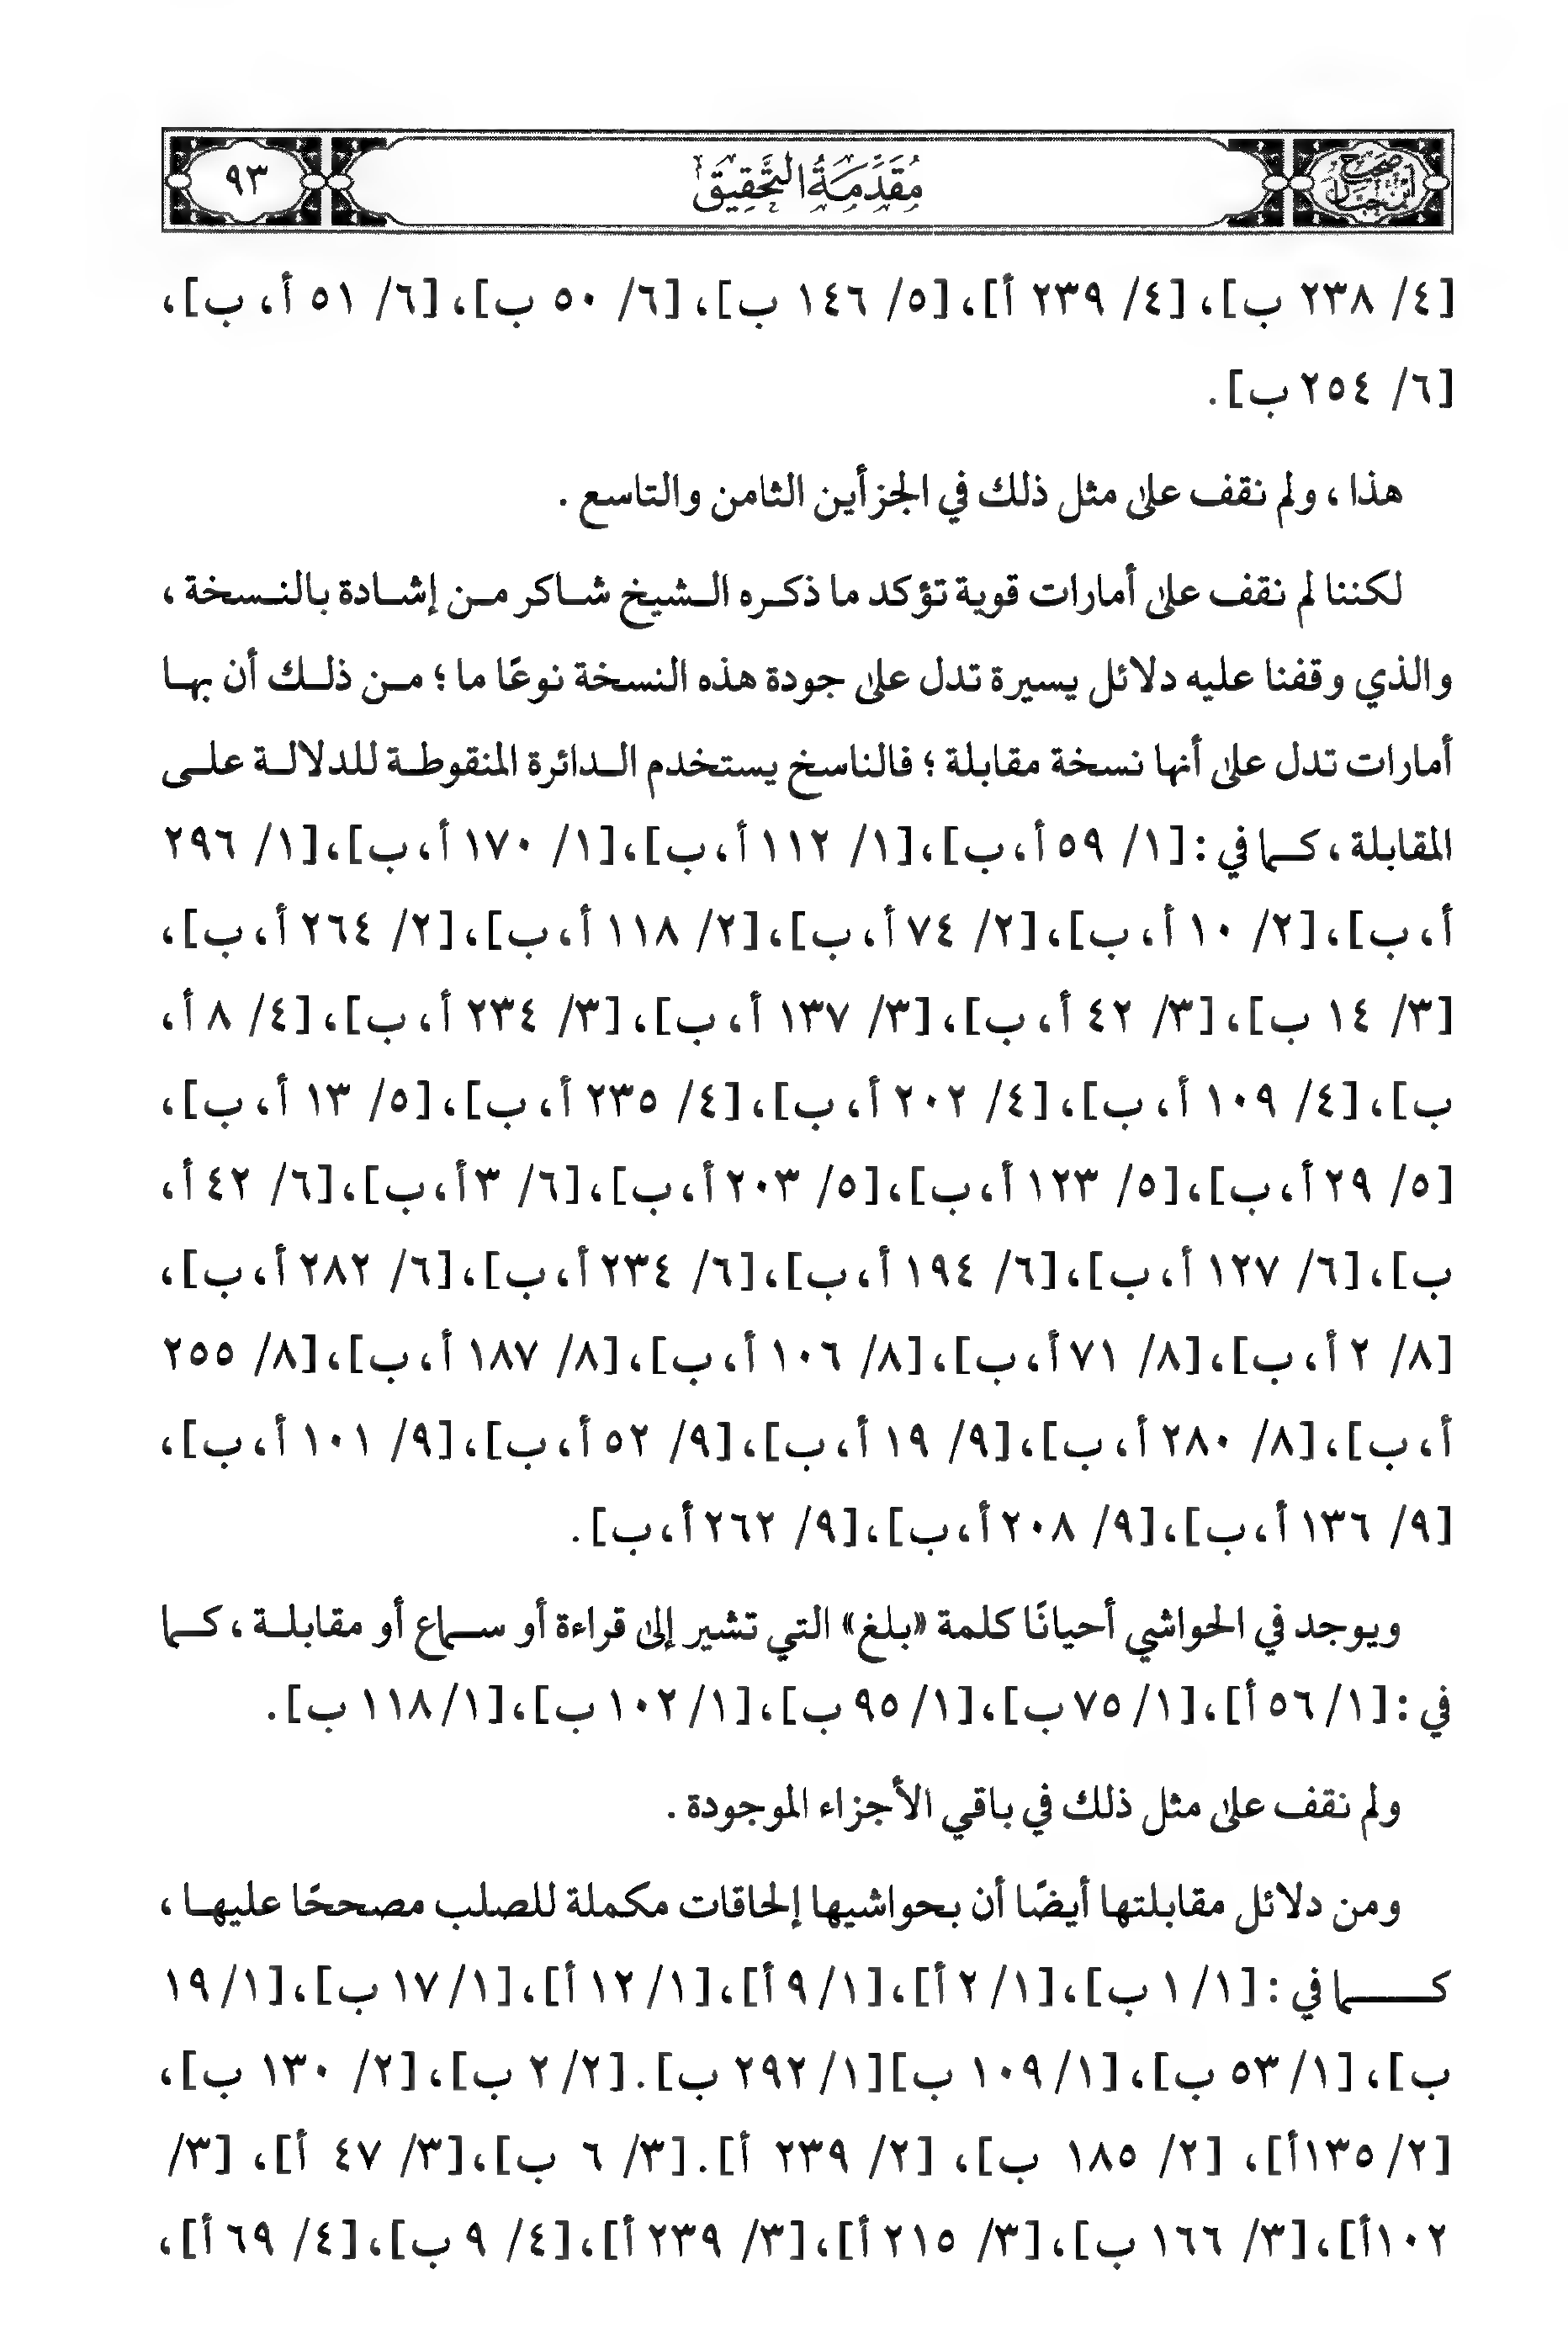 صحيح ابن حبان
مُقَدِّمَةُ التَّحْقِيقِ
٩٣
[٤/ ٢٣٨ ب]، [٤/ ٢٣٩ أ]، [٥/ ١٤٦ ب]، [٦/ ٥٠ ب]، [٦/ ٥١ أ، ب]،
[٦/ ٢٥٤ ب] .
هذا ، ولم نقف على مثل ذلك في الجزأين الثامن والتاسع .
لكننا لم نقف على أمارات قوية تؤكد ما ذكره الشيخ شاكر من إشادة بالنسخة ،
والذي وقفنا عليه دلائل يسيرة تدل على جودة هذه النسخة نوعًا ما ؛ من ذلك أن بها
أمارات تدل على أنها نسخة مقابلة ؛ فالناسخ يستخدم الدائرة المنقوطة للدلالة على
المقابلة ، كما في : [١/ ٥٩ أ، ب]، [١/ ١١٢ أ، ب]، [١/ ١٧٠ أ، ب]، [١/ ٢٩٦
أ، ب]، [٢/ ١٠ أ، ب]، [٢/ ٧٤ أ، ب]، [٢/ ١١٨ أ، ب]، [٢/ ٢٦٤ أ، ب]،
[٣/ ١٤ ب]، [٣/ ٤٢ أ، ب]، [٣/ ١٣٧ أ، ب]، [٣/ ٢٣٤ أ، ب]، [٤/ ٨ أ،
ب]، [٤/ ١٠٩ أ، ب]، [٤/ ٢٠٢ أ، ب]، [٤/ ٢٣٥ أ، ب]، [٥/ ١٣ أ، ب]،
[٥/ ٢٩ أ، ب]، [٥/ ١٢٣ أ، ب]، [٥/ ٢٠٣ أ، ب]، [٦/ ٣ أ، ب]، [٦/ ٤٢ أ،
ب]، [٦/ ١٢٧ أ، ب]، [٦/ ١٩٤ أ، ب]، [٦/ ٢٣٤ أ، ب]، [٦/ ٢٨٢ أ، ب]،
[٨/ ٢ أ، ب]، [٨/ ٧١ أ، ب]، [٨/ ١٠٦ أ، ب]، [٨/ ١٨٧ أ، ب]، [٨/ ٢٥٥
أ، ب]، [٨/ ٢٨٠ أ، ب]، [٩/ ١٩ أ، ب]، [٩/ ٥٢ أ، ب]، [٩/ ١٠١ أ، ب]،
[٩/ ١٣٦ أ، ب]، [٩/ ٢٠٨ أ، ب]، [٩/ ٢٦٢ أ، ب] .
ويوجد في الحواشي أحيانًا كلمة «بلغ» التي تشير إلى قراءة أو سماع أو مقابلة ، كما
في : [١/ ٥٦ أ]، [١/ ٧٥ ب]، [١/ ٩٥ ب]، [١/ ١٠٢ ب]، [١/ ١١٨ ب] .
ولم نقف على مثل ذلك في باقي الأجزاء الموجودة .
ومن دلائل مقابلتها أيضًا أن بحواشيها إلحاقات مكملة للصلب مصححًا عليها ،
كما في : [١/ ١ ب]، [١/ ٢ أ]، [١/ ٩ أ]، [١/ ١٢ أ]، [١/ ١٧ ب]، [١/ ١٩
ب]، [١/ ٥٣ ب]، [١/ ١٠٩ ب][١/ ٢٩٢ ب] . [٢/ ٢ ب]، [٢/ ١٣٠ ب]،
[٢/ ١٣٥أ]، [٢/ ١٨٥ ب]، [٢/ ٢٣٩ أ] . [٣/ ٦ ب]، [٣/ ٤٧ أ]، [٣/
١٠٢أ]، [٣/ ١٦٦ ب]، [٣/ ٢١٥ أ]، [٣/ ٢٣٩ أ]، [٤/ ٩ ب]، [٤/ ٦٩ أ]،